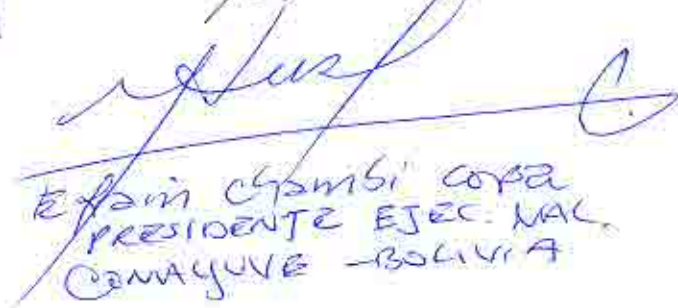 Efraín Chambi Copa
PRESIDENTE EJEC. NAL.
CONALJUVE - BOLIVIA